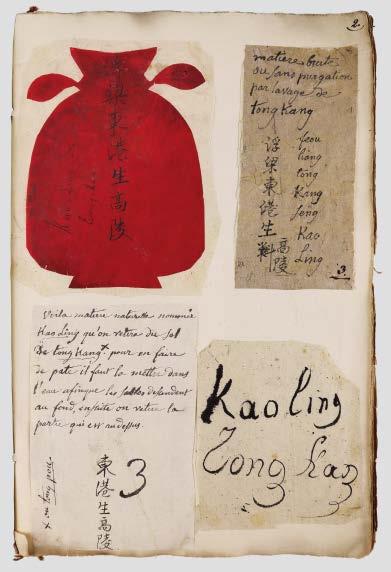 2.
浮梁東港生高陵
matiere brute
ou sans purgation
par lavage de
tong Kang
feou
liang
tong
Kang
seng
Kao
Ling
浮梁東港生料高陵
3.
Voila matiere naturelle nommée
Kao Ling qu'on retira du sol
De tong Kang. x pour en faire
de pate il faut la mettre dans
l'eau afin que les sables dependent
au fond, ensuite on retire la
partie qui est au dessus.
東港生高陵
3
Kaoling
Tong Kang